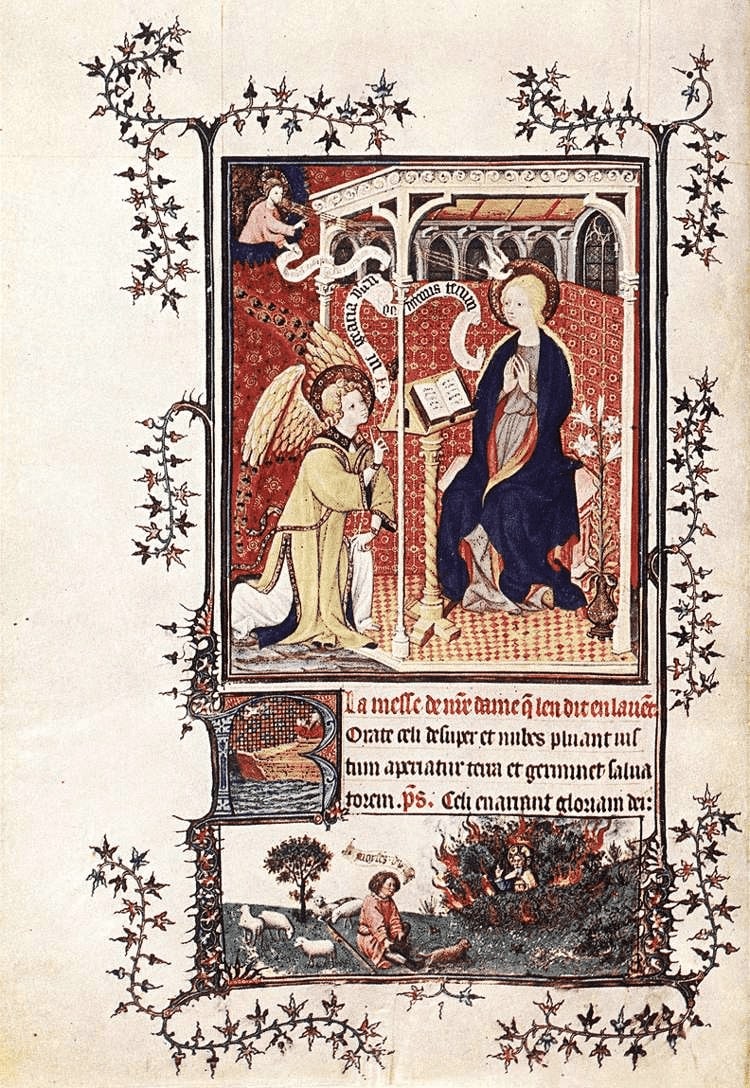 gratia plen dominus tecum
La messe de nr̃e dame q̃ len dit en lauẽt.
ROrate celi desuper et nubes pluant ius
tum aperiatur terra et germinet salua
torem. p̃s. Celi enarrant gloriam dei: